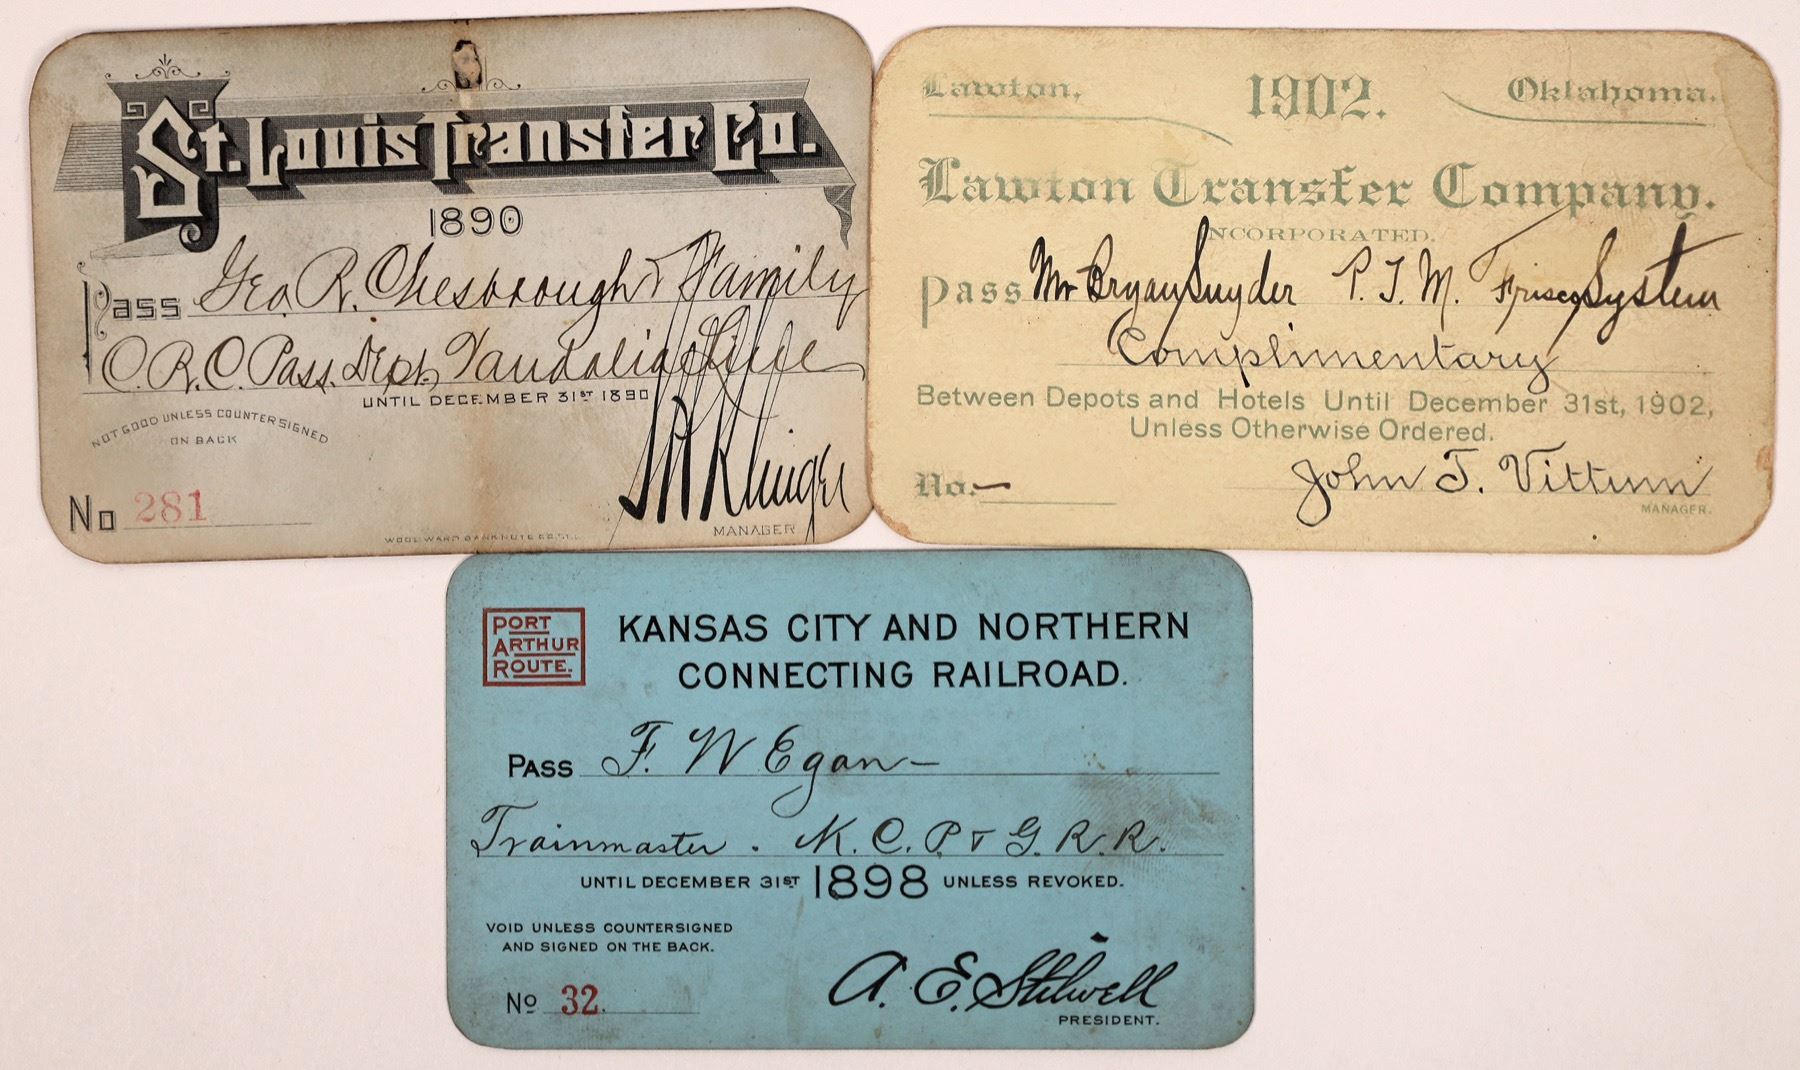 St. Louis Transfer Co.
1890
Pass Geo. R. Chesbrough & Family
C. R. C. Pass. Dept. Vandalia Line
UNTIL DECEMBER 31ST 1890
NOT GOOD UNLESS COUNTERSIGNED
ON BACK
No 281
MANAGER
WOODWARD BANK NOTE CO. ST. L.
Lawton, 1902. Oklahoma.
Lawton Transfer Company.
INCORPORATED.
Pass Mr Bryan Snyder P. T. M. Frisco System
Complimentary
Between Depots and Hotels Until December 31st, 1902,
Unless Otherwise Ordered.
No. —
John T. Vittum
MANAGER.
PORT
ARTHUR
ROUTE.
KANSAS CITY AND NORTHERN
CONNECTING RAILROAD.
PASS F. W Egan —
Trainmaster. K. C. P. & G. R. R.
UNTIL DECEMBER 31ST 1898 UNLESS REVOKED.
VOID UNLESS COUNTERSIGNED
AND SIGNED ON THE BACK.
No 32.
A. E. Stilwell
PRESIDENT.